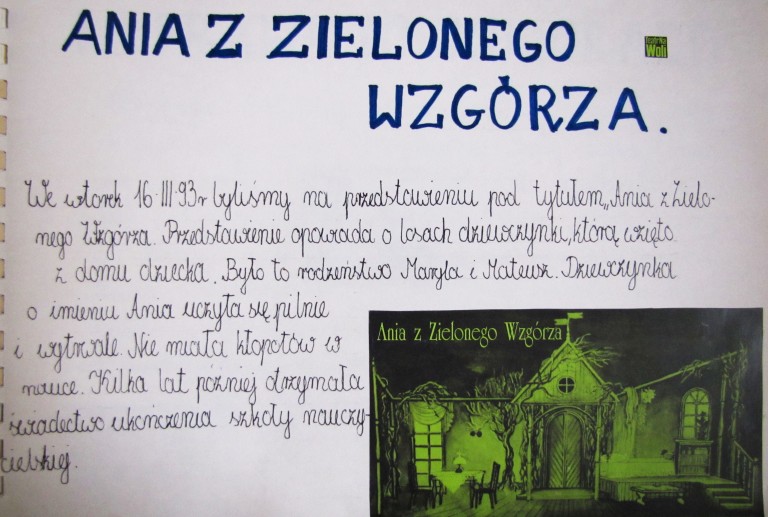 ANIA Z ZIELONEGO
WZGÓRZA.
We wtorek 16 III 93r byliśmy na przedstawieniu pod tytułem „Ania z Zielo-
nego Wzgórza. Przedstawienie opowiada o losach dziewczynki, którą wzięto
z domu dziecka. Było to rodzeństwo Maryla i Mateusz. Dziewczynka
o imieniu Ania uczyła się pilnie
i wytrwale. Nie miała kłopotów w
nauce. Kilka lat później otrzymała
świadectwo ukończenia szkoły nauczy-
cielskiej.
Ania z Zielonego Wzgórza
Woli